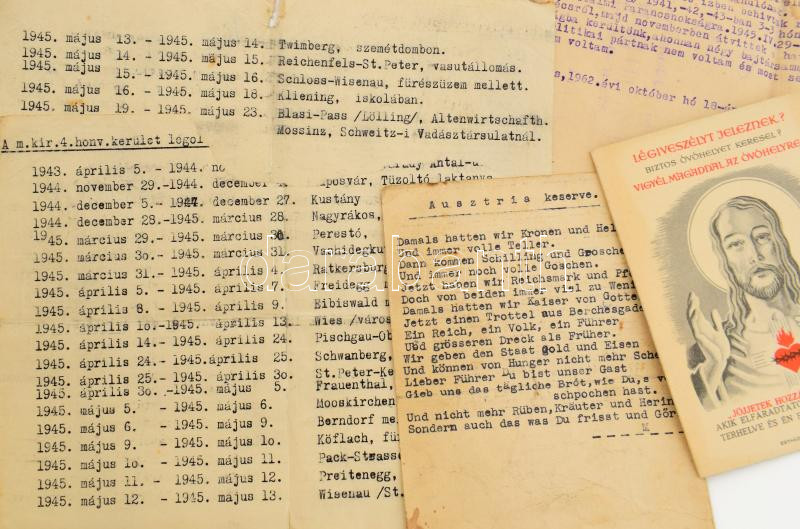 1945. május 13. - 1945. május 14. Twimberg, szemétdombon.
1945. május 14. - 1945. május 15. Reichenfels-St.Peter, vasutállomás.
1945. május 15. - 1945. május 16. Schloss-Wisenau, fürészüzem mellett.
1945. május 16. - 1945. május 18. Kliening, iskolában.
1945. május 19. - 1945. május 23. Blasi-Pass /Lölling/, Altenwirtschafth.
Mossinz, Schweitz-i Vadásztársulatnál.
A m.kir.4.honv.kerület légol
1943. április 5. - 1944. no
1944. november 29.-1944. december
1944. december 5.-1944. december 27. Kustány
1944. december 28.-1945. március 28. Nagyrákos,
1945. március 29.- 1945. március 30. Perestő,
1945. március 30.- 1945. március 31.
1945. március 31.- 1945. április 4. Ratkersburg
1945. április 5. - 1945. április 7. Freidegg
1945. április 8. - 1945. április 9. Eibiswald
1945. április 10.-1845. április 13. Wies /város
1945. április 14.- 1945. április 24. Pischgau-Ob
1945. április 24.- 1945. április 25. Schwanberg,
1945. április 25.- 1945. április 30. St.Peter-Ke
1945. április 30.- 1945. május 5. Frauenthal,
1945. május 5. - 1945. május 6. Mooskirchen
1945. május 6. - 1945. május 9. Berndorf me
1945. május 9. - 1945. május 10. Köflach, fü
1945. május 10. - 1945. május 11. Pack-Strasse
1945. május 11. - 1945. május 12. Preitenegg,
1945. május 12. - 1945. május 13. Wisenau /St.
Tüzoltó laktanya
1962.évi október hó 18-
Ausztria keserve.
Damals hatten wir Kronen und Hel
Und immer volle Teller.
Dann kommen Schilling und Grosche
Und immer noch volle Goschen.
Jetzt haben wir Reichsmark und Pf
Doch von beiden immer viel zu Weni
Damals hatten wir Kaiser von Gotte
Jetzt einen Trottel aus Berchesgade
Ein Reich, ein Volk, ein Führer
Und grösseren Dreck als Früher.
Wir geben den Staat Gold und Eisen
Und können von Hunger nicht mehr Sche
Lieber Führer Du bist unser Gast
Gieb uns das tägliche Bröt,wie Du,s v
schpochen hast.
Und nicht mehr Rüben,Kräuter und Herin
Sondern such das was Du frisst und Gör
LÉGIVESZÉLYT JELEZNEK?
BIZTOS ÓVÓHELYET KERESEL?
VIGYÉL MAGADDAL AZ ÓVÓHELYRE
"JÖJJETEK HOZZÁ
AKIK ELFÁRADTATO
TERHELVE ÉS ÉN F
darabanth.com